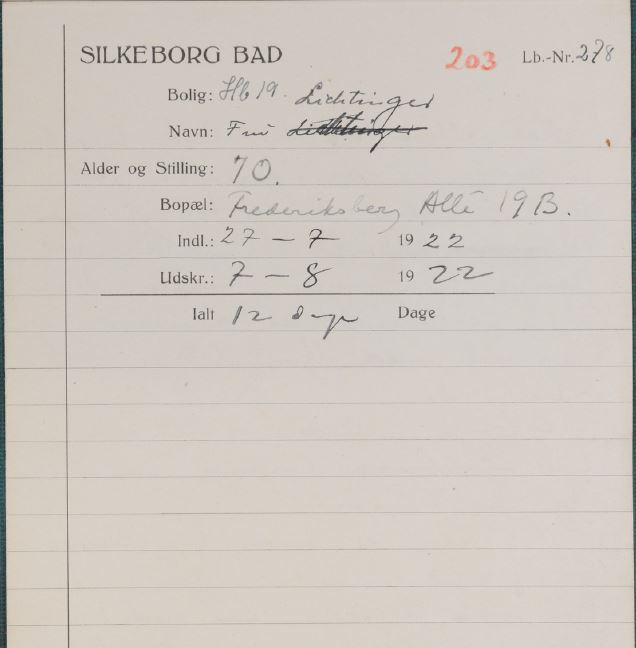 SILKEBORG BAD 203 Lb.-Nr. 278
Bolig: Hb 19. Lichtinger
Navn: Fru Lichtinger
Alder og Stilling: 70.
Bopæl: Frederiksberg Allé 19 B.
Indl.: 27 – 7 19 22
Udskr.: 7 – 8 19 22
Ialt 12 dage Dage